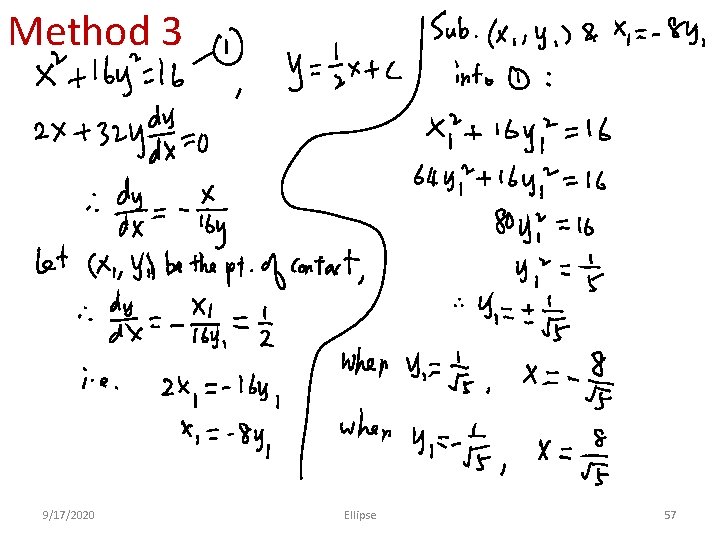 Method 3
x²+16y²=16 —①, y=½x+c
2x+32y dy/dx=0
∴ dy/dx = -x/16y
Let (x₁, y₁) be the pt. of contact,
∴ dy/dx = -x₁/16y₁ = 1/2
i.e. 2x₁=-16y₁
x₁=-8y₁
Sub. (x₁, y₁) & x₁=-8y₁
into ① :
x₁²+16y₁²=16
64y₁²+16y₁²=16
80y₁²=16
y₁²=1/5
∴ y₁=±1/√5
when y₁=1/√5, x=-8/√5
when y₁=-1/√5, x=8/√5
9/17/2020
Ellipse
57